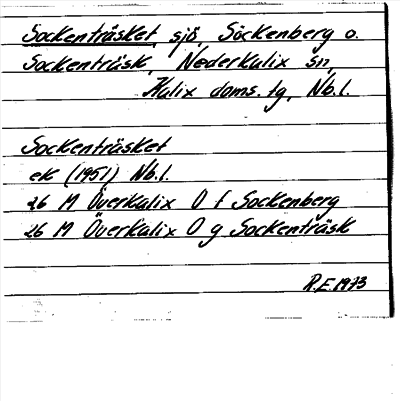 Sockenträsket, sjö, Sockenberg o.
Sockenträsk, Nederkalix sn,
Kalix doms. tg, Nb.l.
Sockenträsket
ek (1951) Nb.l.
26 M Överkalix O f Sockenberg
26 M Överkalix O g Sockenträsk
R.E. 1973